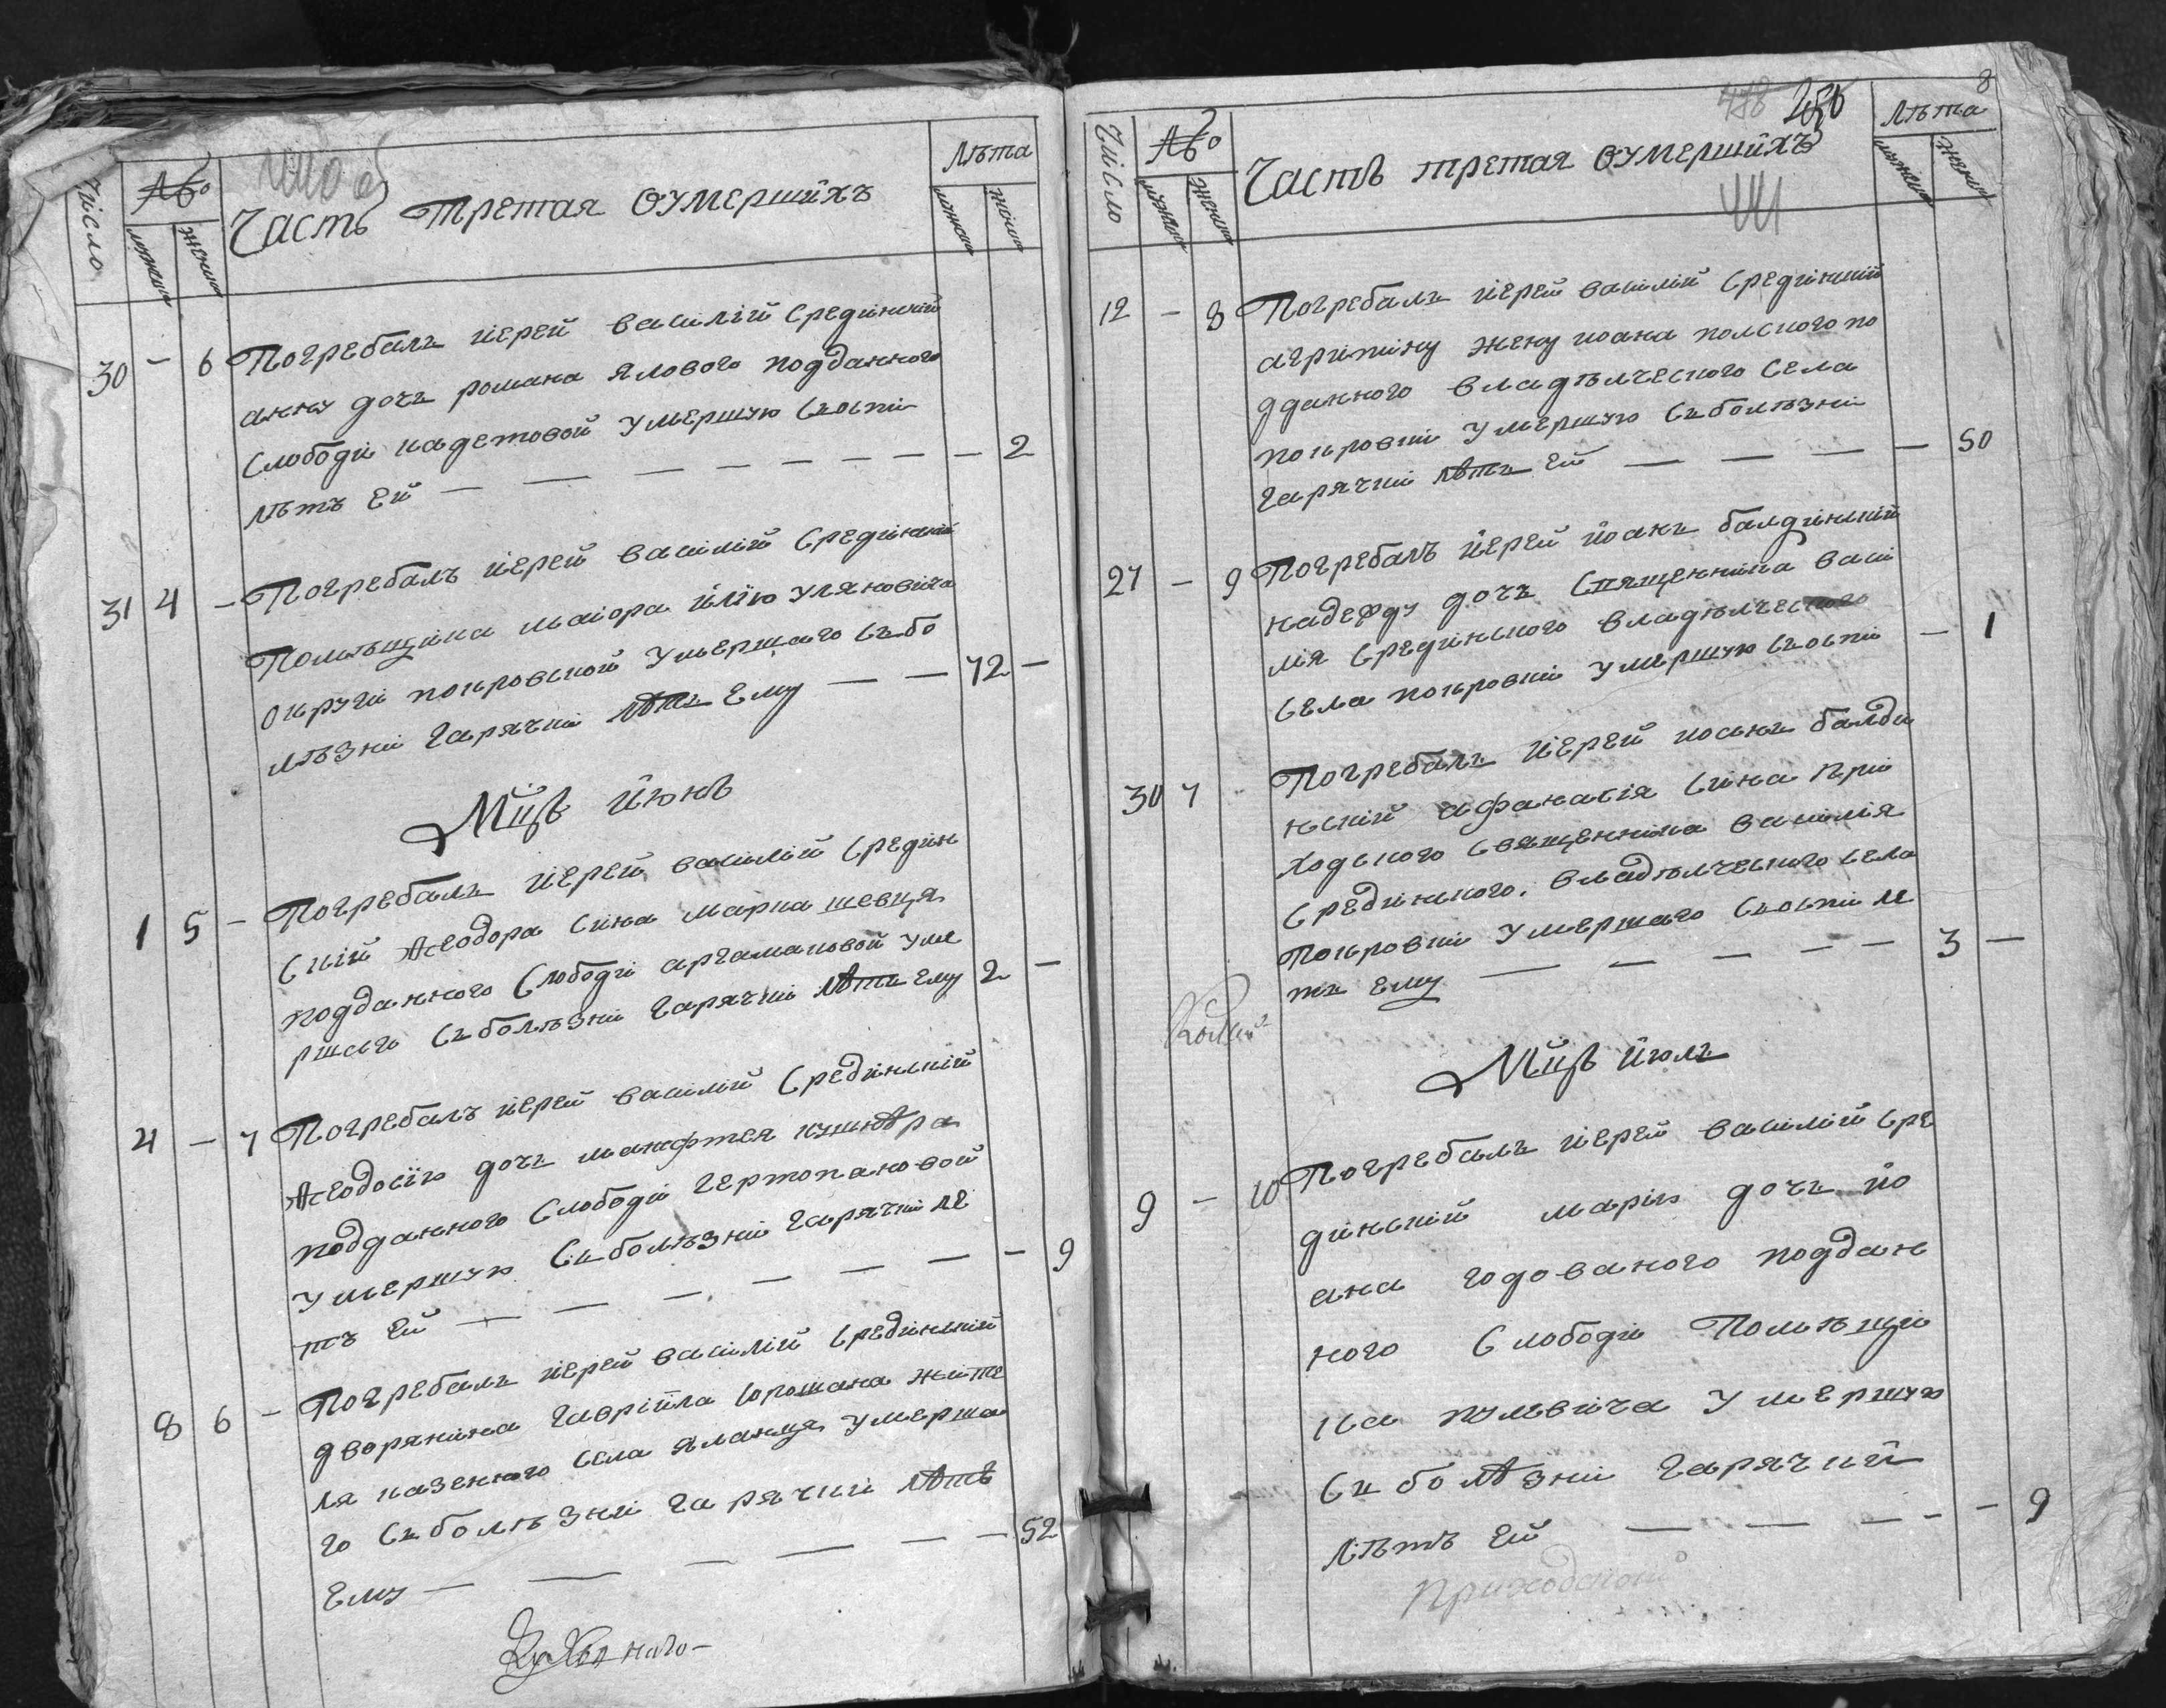 Число № Часть третая оумершихъ Лѣта
мужеск женск мужеск женск
30 – 6 Погребалъ иерей василий Срединский
анну дочь романа Ялового подданного
Слободи кадетовой Умершую Съоспи
лѣтъ Ей — — — — — — — 2
31 4 – Погребалъ иерей василий Срединский
Помѣщика маиора илїю Уляновича
округи покровской Умершаго Събо
лѣзни Гарячки лѣтъ Ему — — 72 –
Мцъ июнь
1 5 – Погребалъ иерей василий Средин
ский Феодора Сина марка шевця
подданного Слободи аргамаковой Уме
ршаго Съболѣзни Гарячки лѣтъ Ему 2 –
4 – 7 Погребалъ иерей василий Срединский
Феодосїю дочь манфтея кушнѣра
подданного Слободи Гертопановой
Умершую Съболѣзни Гарячки лѣ
тъ Ей — — — — — — – 9
8 6 – Погребалъ иерей василий Срединский
дворянина Гавриїла жите
ля казенного Села Яланця Умерша
го Съболѣзни Гарячки лѣтъ
Ему — — — — — – 52
Духовного –
8
418 250
Число № Часть третая оумершихъ Лѣта
мужеск женск мужеск женск
12 – 8 Погребалъ иерей василий Срединский
агрипину жену иоана полского по
дданного владѣлческого Села
покровки Умершую Съболѣзни
Гарячки лѣтъ Ей — — — – 50
27 – 9 Погребалъ иерей иоанъ балдинский
надежду дочь Священника васи
лия Срединского владѣлческого
Села покровки Умершую Съоспи – 1
30 7 Погребалъ иерей иоанъ балди
нский афанасия Сина при
ходского Священника василия
Срединского владѣлческого Села
Покровки Умершаго Съоспи лѣ
тъ Ему — — — — — 3 –
Мцъ июль
9 – 10 Погребалъ иерей василий Сре
динский марию дочь ио
ана годованого поддан
ного Слободи Помѣщи
ка Умершую
Съ болѣзни Гарячки
лѣтъ Ей — — — – – 9
Приходской